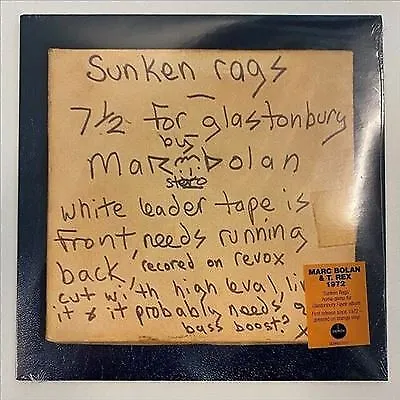 Sunken rags
–
7½ for glastonbury
by
Marc Bolan
stereo
white leader tape is
front needs running
back, recored on revox
cut with high leval, li
it & it probably needs a
bass boost? x
MARC BOLAN
& T. REX
1972
'Sunken Rags'
home demo for
Glastonbury Fayre album
First release since 1972 –
pressed on orange vinyl